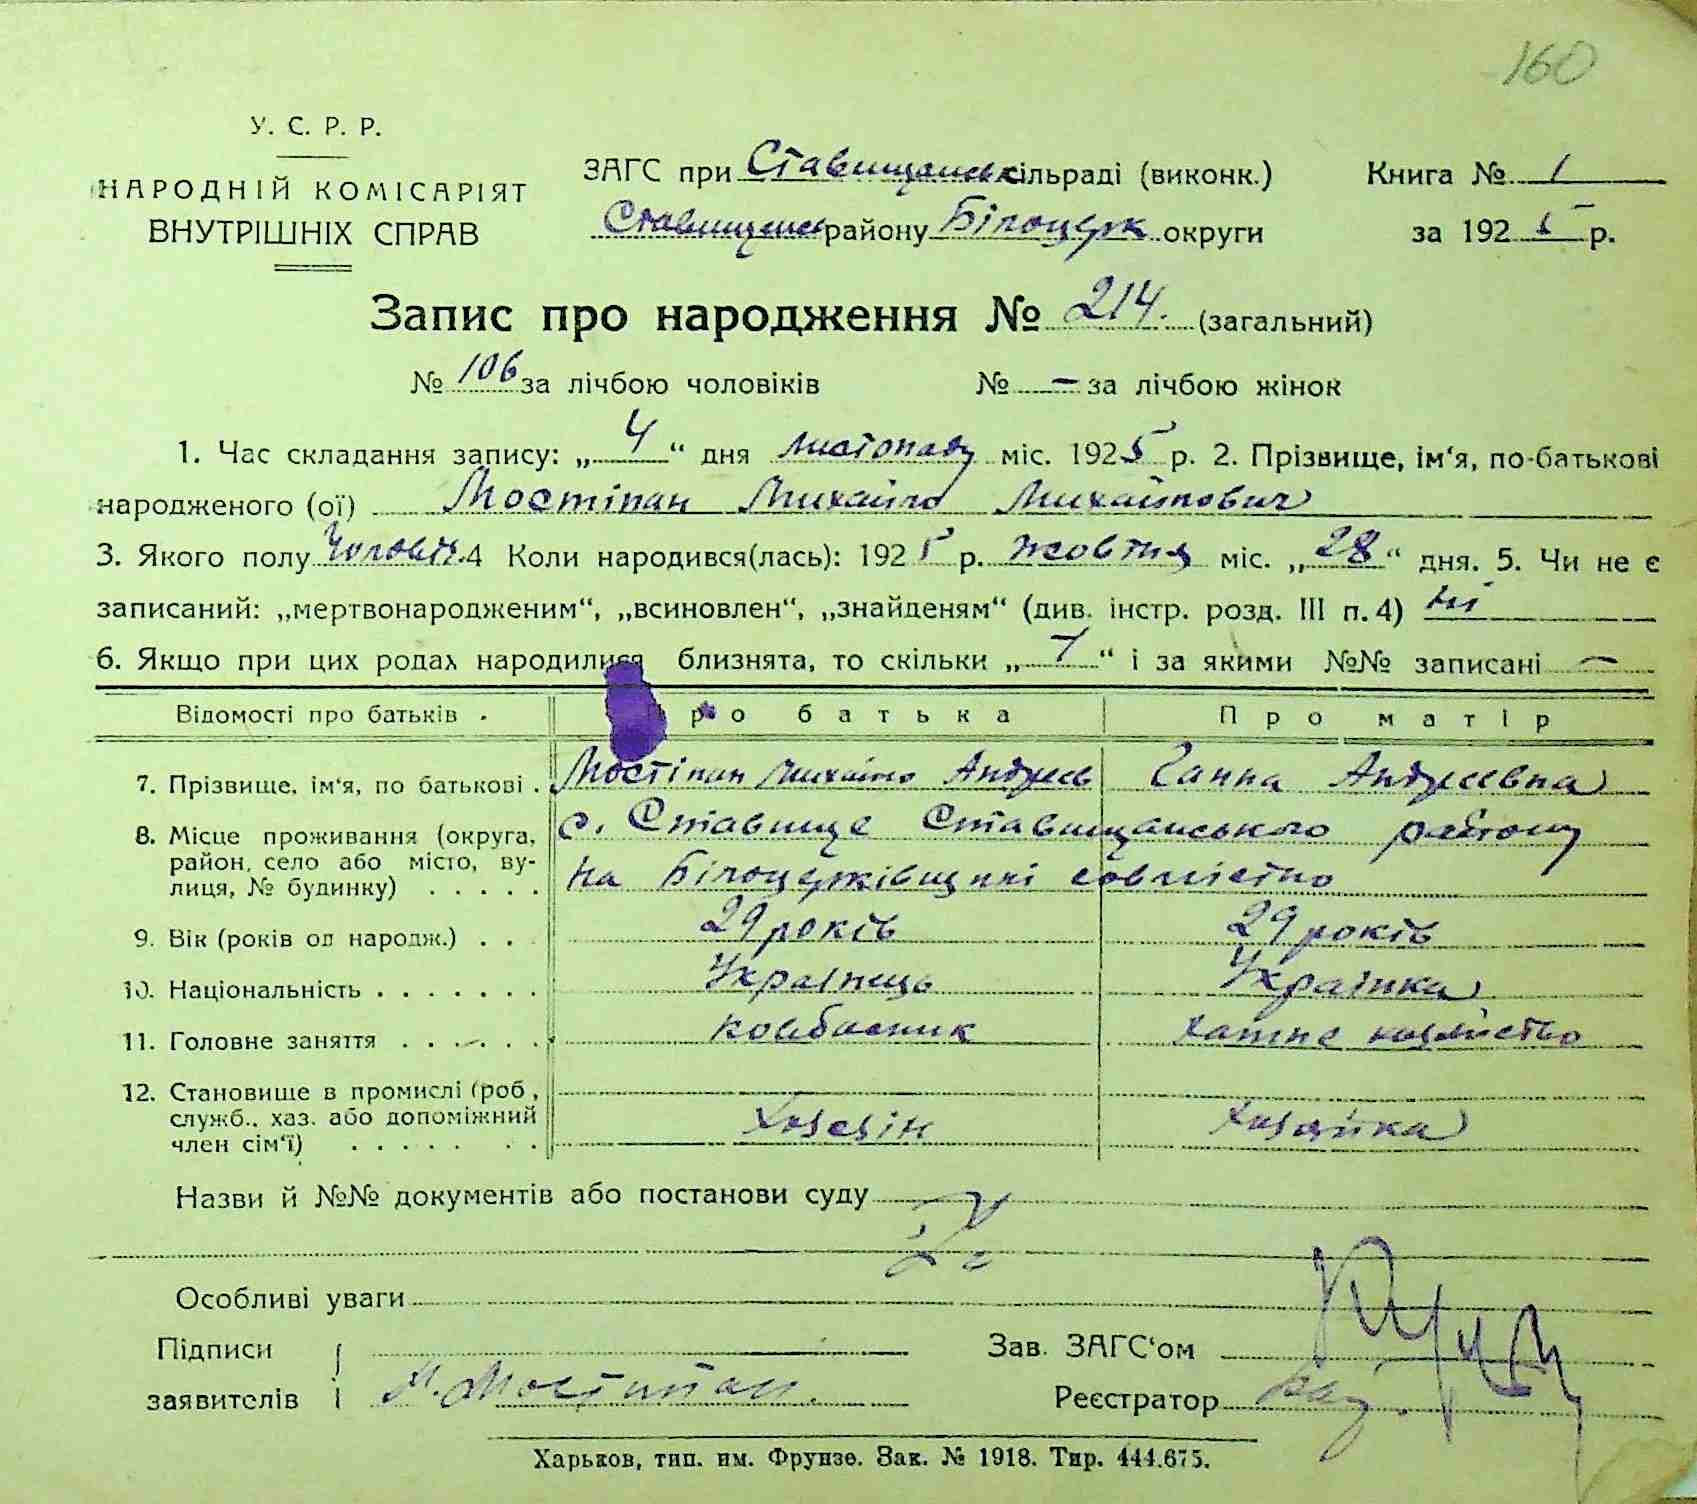 160
У. С. Р. Р.
НАРОДНІЙ КОМІСАРІЯТ
ВНУТРІШНІХ СПРАВ
ЗАГС при Ставищанськ сільраді (виконк.)
Ставищанськ району Білоцерк округи
Книга № 1
за 1925 р.
Запис про народження № 214. (загальний)
№ 106 за лічбою чоловіків № — за лічбою жінок
1. Час складання запису: „4“ дня листопаду міс. 1925 р. 2. Прізвище, ім‘я, по-батькові
народженого (ої) Мостіпан Михайло Михайлович
3. Якого полу Чоловіч. 4 Коли народився(лась): 1925 р. жовтня міс. „28“ дня. 5. Чи не є
записаний: „мертвонародженим“, „всиновлен“, „знайденям“ (див. інстр. розд. III п. 4) Ні
6. Якщо при цих родах народилися близнята, то скільки „ “ і за якими №№ записані —
Відомості про батьків . ро батька Про матір
7. Прізвище, ім‘я, по батькові . Мостіпан Михайло Андреєв Ганна Андреєвна
8. Місце проживання (округа, район, село або місто, вулиця, № будинку) . . . . . с. Ставище Ставищанського району
на Білоцерківщині совмістно
9. Вік (років од народж.) . . . 29 років 29 років
10. Національність . . . . . . . Українець Українка
11. Головне заняття . . . . . . ковбасник хатнє хозяйство
12. Становище в промислі (роб., служб., хаз. або допоміжний член сім‘ї) . . . . . . . Хозеїн Хозяйка
Назви й №№ документів або постанови суду
Особливі уваги
Підписи
заявителів М. Мостипан.
Зав. ЗАГС‘ом
Реєстратор
Харьков, тип. им. Фрунзе. Зак. № 1918. Тир. 444.675.